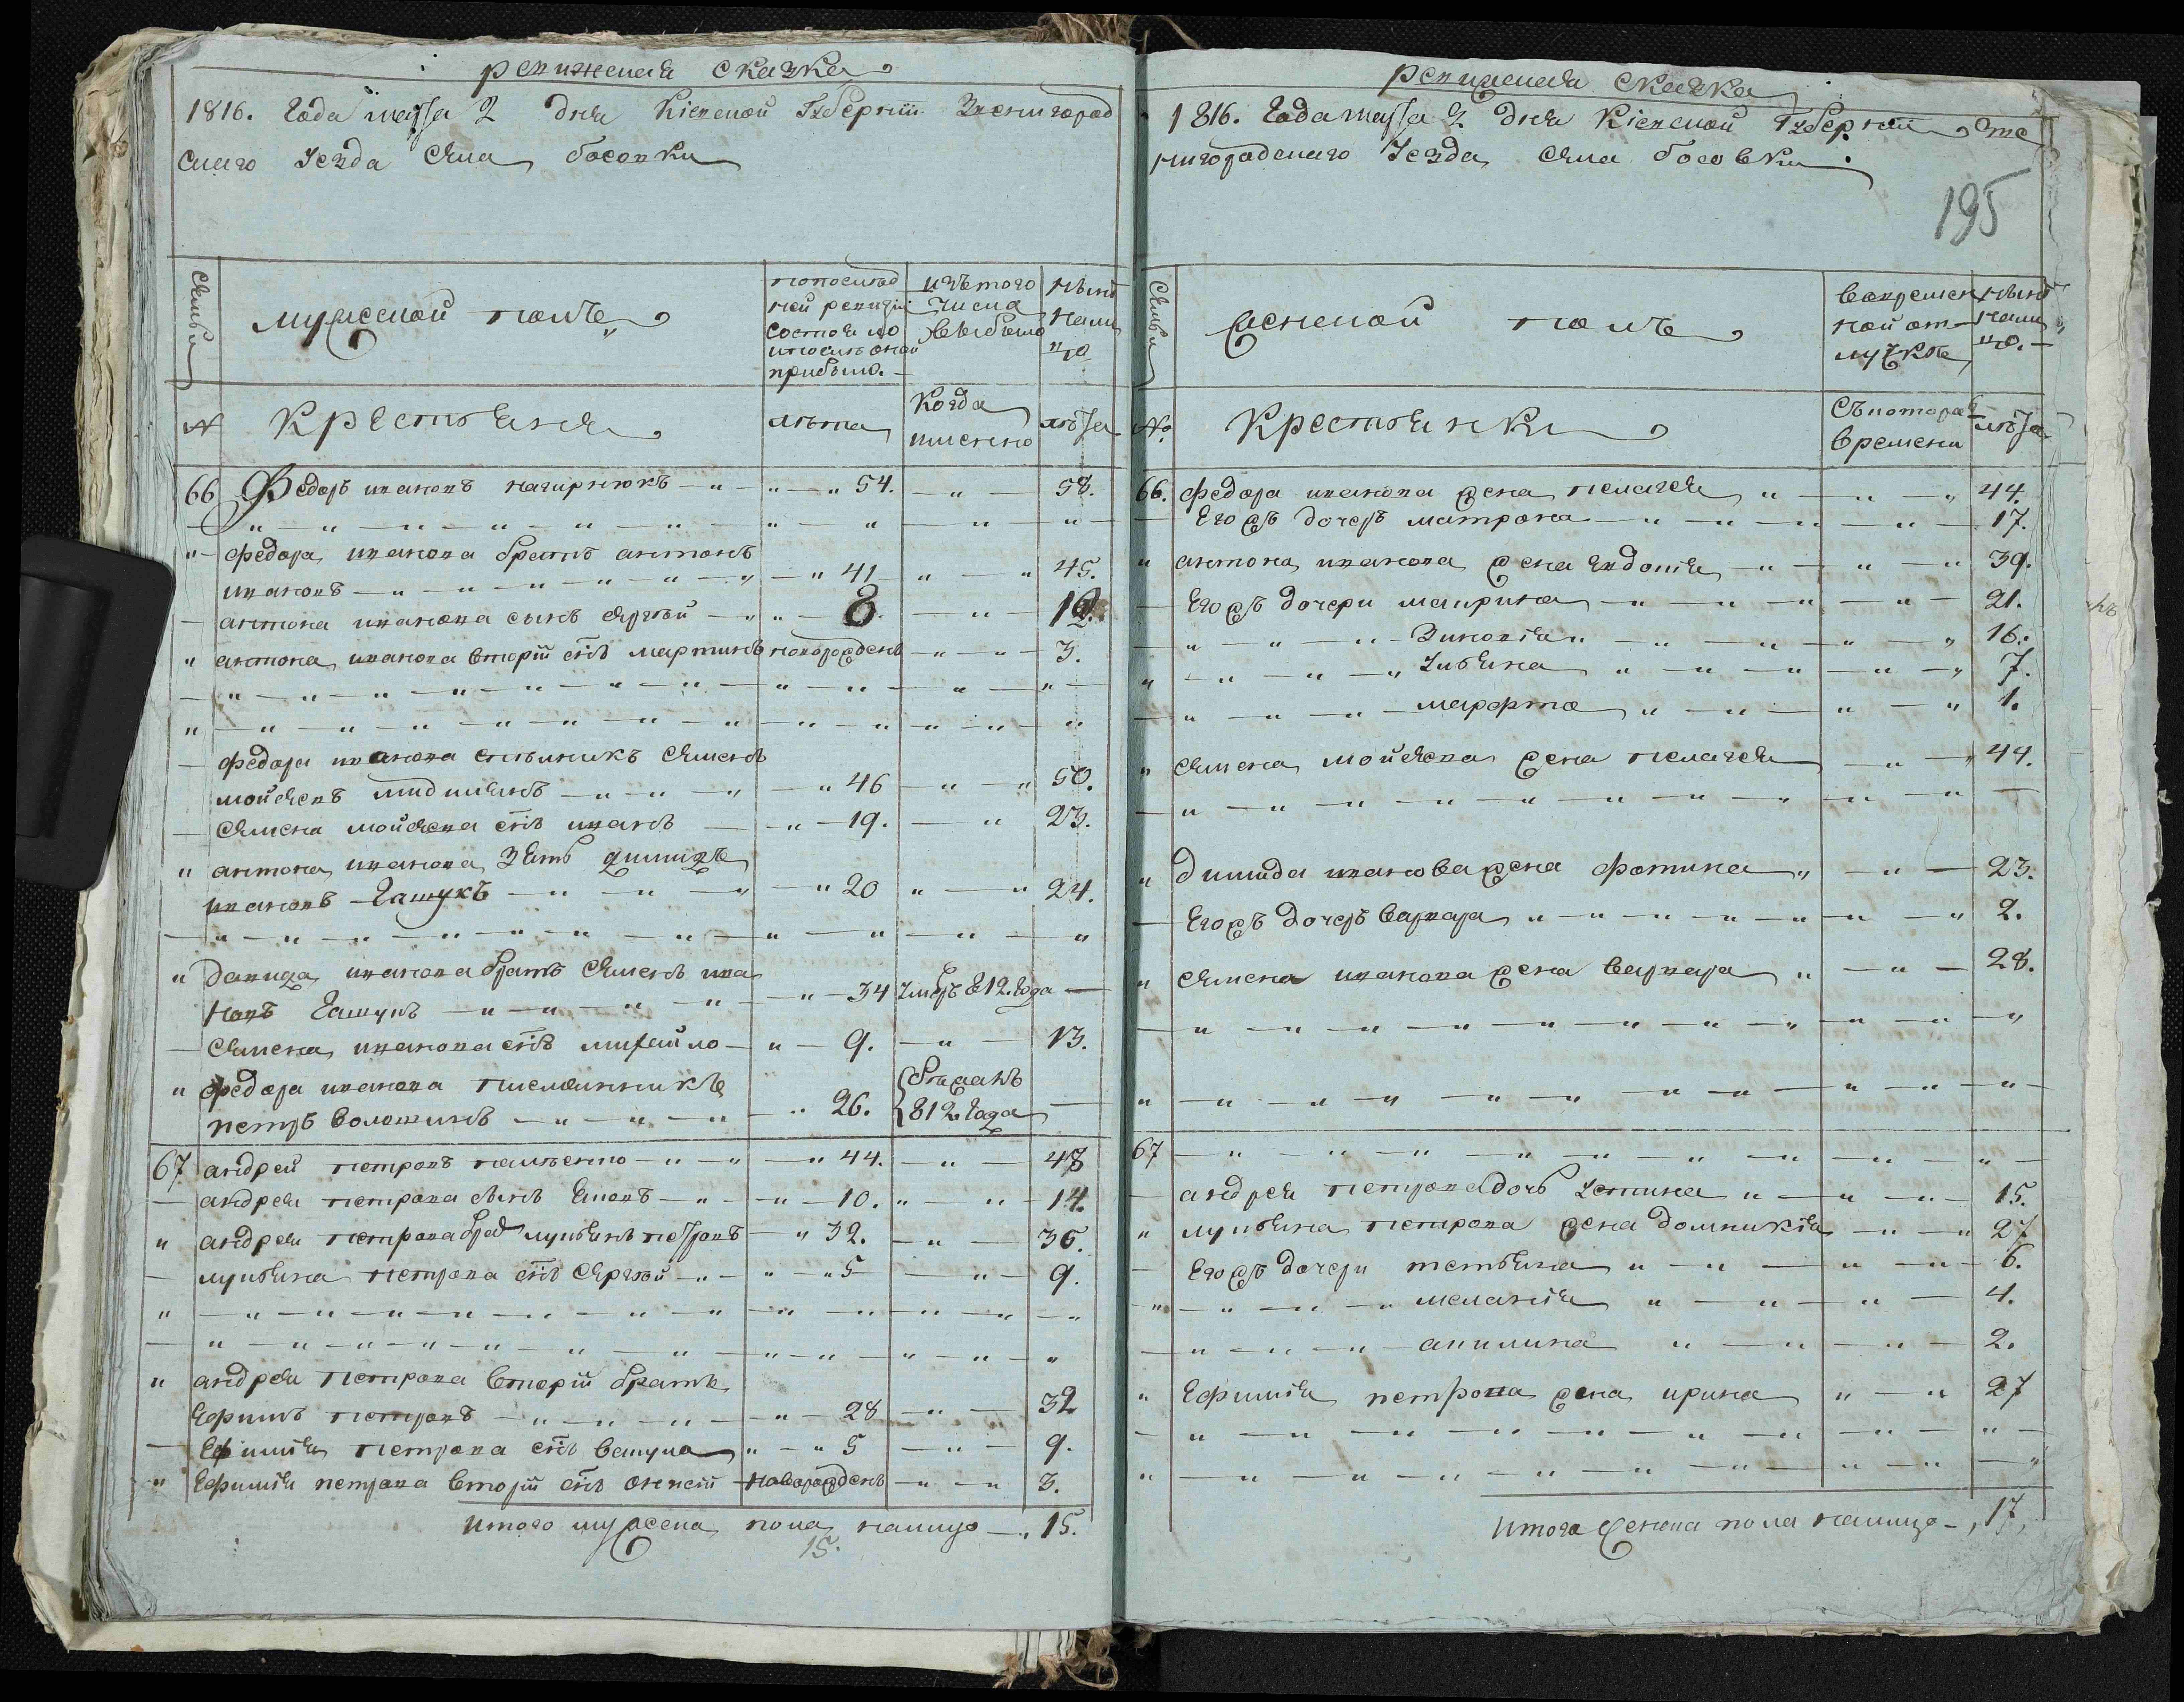 ревижская сказка
1816. года маїя 2 дня Кіевской Губерніи Звенигород
скаго Уезда села босовки
семьи
мужеской полъ
попослед
ней ревизіи
состояло
ипослѣ оной
прибыло.
изътого
числа
выбыло
нынѣ
нали
цо
№
Крестьяня
лѣта
Когда
имѣнно
лѣта
66 Федоръ ивановъ нагирнюкъ 54. 58.
федора иванова братъ антонъ
ивановъ 41 45.
антона иванова сынъ сергѣй 8. 12.
антона иванова вторій снъ мартинъ новорожденъ 3.
федора иванова сметникъ семенъ
мойсеевъ 46 50.
семена мойсеева снъ иванъ 19. 23.
антона иванова зять димидъ
ивановъ гащукъ 20 24.
данида иванова братъ семенъ ива
новъ гащукъ 34 Умеръ 812. года
семена иванова снъ михайло 9. 13.
федора иванова
петръ волошинъ 26. бежалъ 812 года
67 андрей петровъ 44. 48
андрея петрова сынъ 10. 14.
андрея петрова брат лукьянъ петровъ 32. 36.
лукьяна петрова снъ сергѣй 5 9.
андрея петрова вторій братъ
Ефимъ петровъ 28 32
Ефимія петрова снъ вакула 5 9.
Ефимія петрова вторій снъ новорожденъ 3.
итого мужеска пола налицо 15.
15.
ревижская сказка
1816. года маїя 2. дня Кіевской Губерніи Зве
нигородскаго Уезда села босовки
195
семьи
женской полъ
вовремен
ной от
лучкѣ
нынѣ
нали
цо.
№
Крестьянки
Съкотораго
времени
лѣта
66. федора иванова жена пелагея 44.
Его жъ дочеръ матрона 17.
антона иванова жена евдокія 39.
Его жъ дочери маврина 21.
Зиновія 16.
Ульяна 7.
марфта 1.
семена мойсеева жена пелагея 44.
димида иванова жена фотина 23.
Его жъ дочеръ варвара 2.
семена иванова жена варвара 28.
67
андрея петрова дочь устина 15.
лукьяна петрова жена домникія 27
Его жъ дочери тетьяна 6.
меланія 4.
акилина 2.
Ефимія петрова жена ирина 27
итого женска пола налицо 17